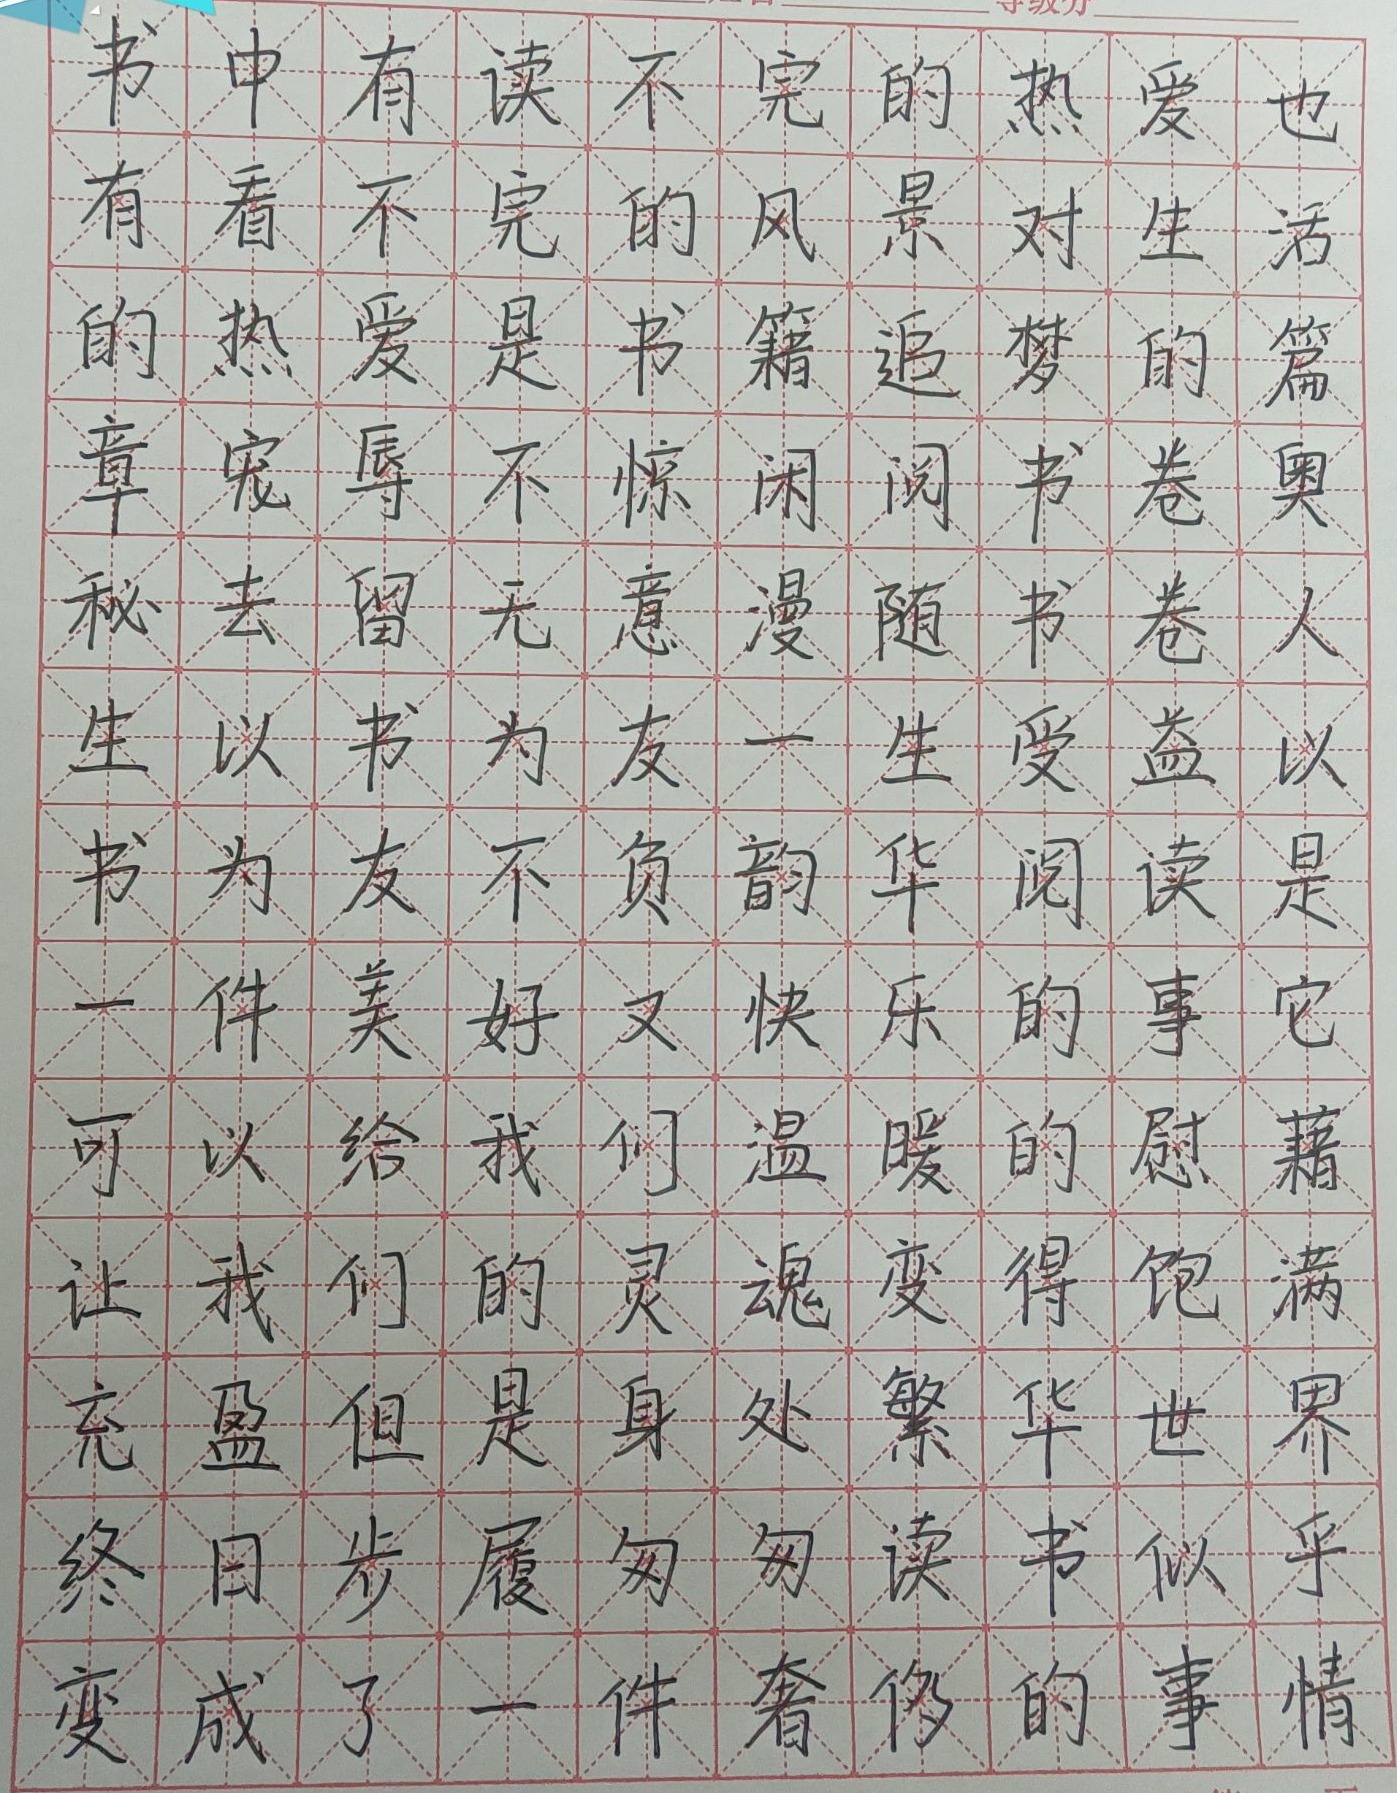 等级分
书中有读不完的热爱也
有看不完的风景对生活
的热爱是书籍追梦的篇
章宠辱不惊闲阅书卷奥
秘去留无意漫随书卷人
生以书为友一生受益以
书为友不负韵华阅读是
一件美好又快乐的事它
可以给我们温暖的慰藉
让我们的灵魂变得饱满
充盈但是身处繁华世界
终日步履匆匆读书似乎
变成了一件奢侈的事情